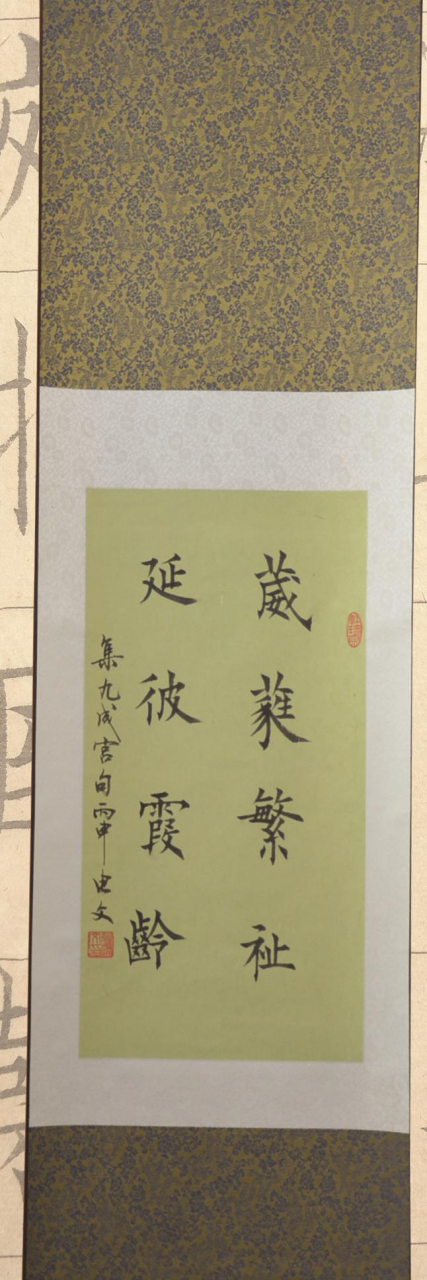 葳蕤繁祉
延彼霞齡
集九成宫句丙申文